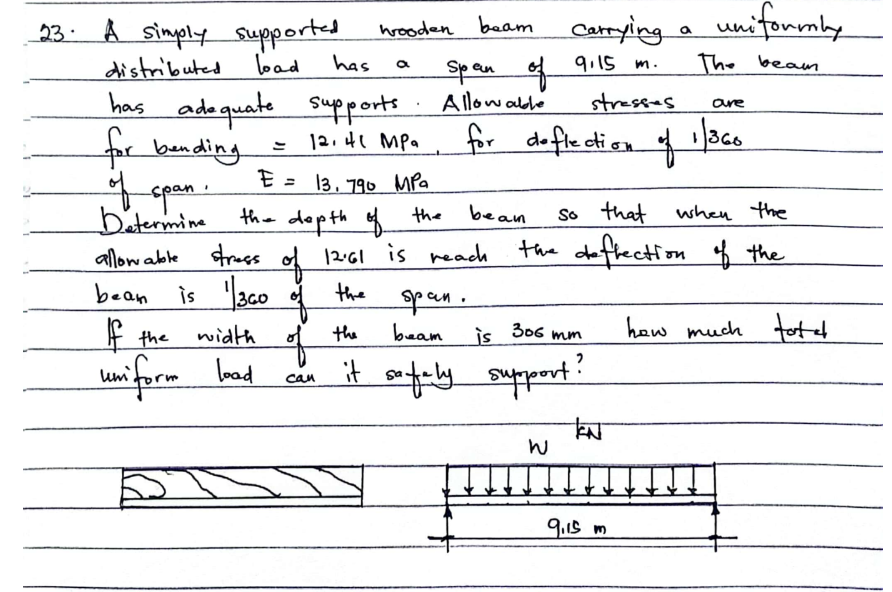 23. A simply supported wooden beam carrying a uniformly
distributed load has a span of 9.15 m. The beam
has adequate supports. Allowable stresses are
for bending = 12.41 MPa, for deflection of 1/360
of span. E = 13,790 MPa
Determine the depth of the beam so that when the
allowable stress of 12.61 is reach the deflection of the
beam is 1/360 of the span.
If the width of the beam is 306 mm how much total
uniform load can it safely support?
W kN
9.15 m